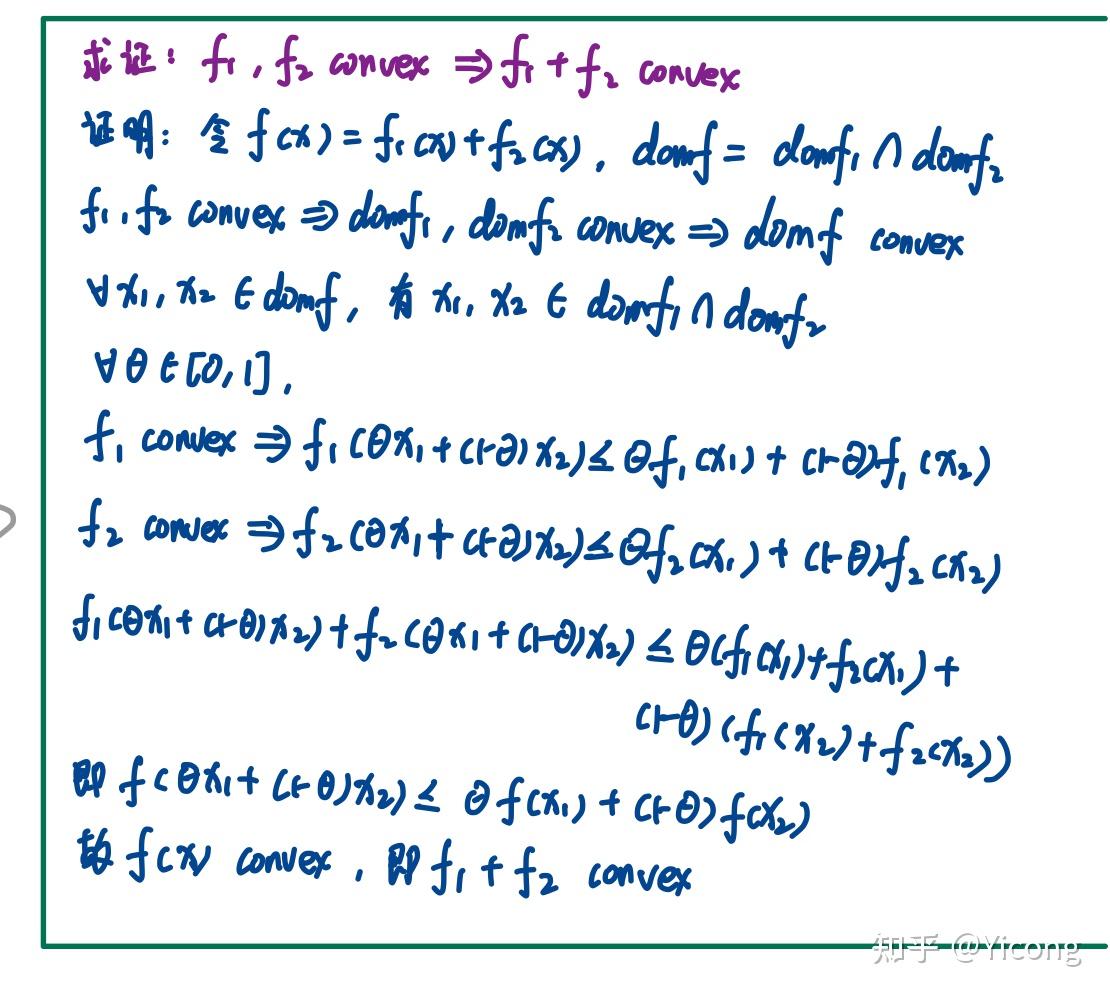 求证: f₁, f₂ convex ⇒ f₁ + f₂ convex
证明: 令 f(x) = f₁(x) + f₂(x), domf = domf₁ ∩ domf₂
f₁, f₂ convex ⇒ domf₁, domf₂ convex ⇒ domf convex
∀ x₁, x₂ ∈ domf, 有 x₁, x₂ ∈ domf₁ ∩ domf₂
∀ θ ∈ [0, 1],
f₁ convex ⇒ f₁(θx₁ + (1-θ)x₂) ≤ θf₁(x₁) + (1-θ)f₁(x₂)
f₂ convex ⇒ f₂(θx₁ + (1-θ)x₂) ≤ θf₂(x₁) + (1-θ)f₂(x₂)
f₁(θx₁ + (1-θ)x₂) + f₂(θx₁ + (1-θ)x₂) ≤ θ(f₁(x₁) + f₂(x₁) +
(1-θ)(f₁(x₂) + f₂(x₂))
即 f(θx₁ + (1-θ)x₂) ≤ θf(x₁) + (1-θ)f(x₂)
故 f(x) convex, 即 f₁ + f₂ convex
知乎 @Yicong